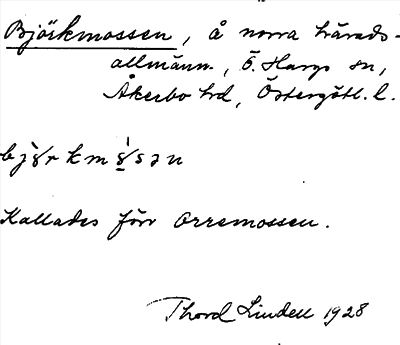 Björkmossen, å norra härads-
allmänn., Ö. Hargs sn,
Åkerbo hd, Östergötl. l.
Kallades förr Orremossen.
Thord Lindell 1928